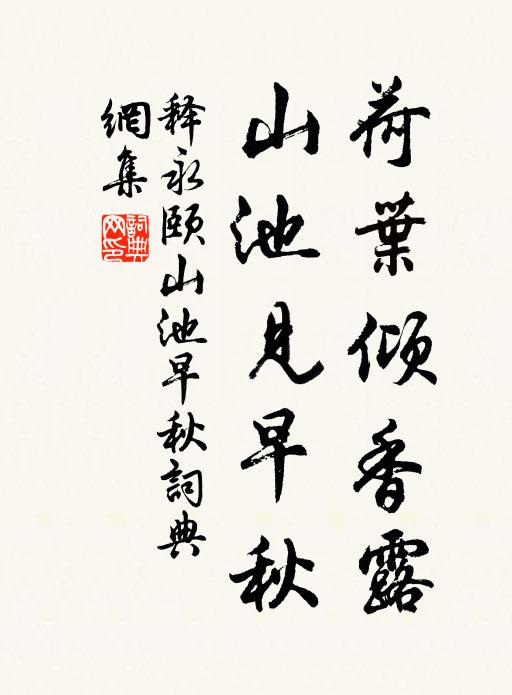 荷葉傾香露
山池見早秋
释永颐山池早秋詞典
網集
詞典網印